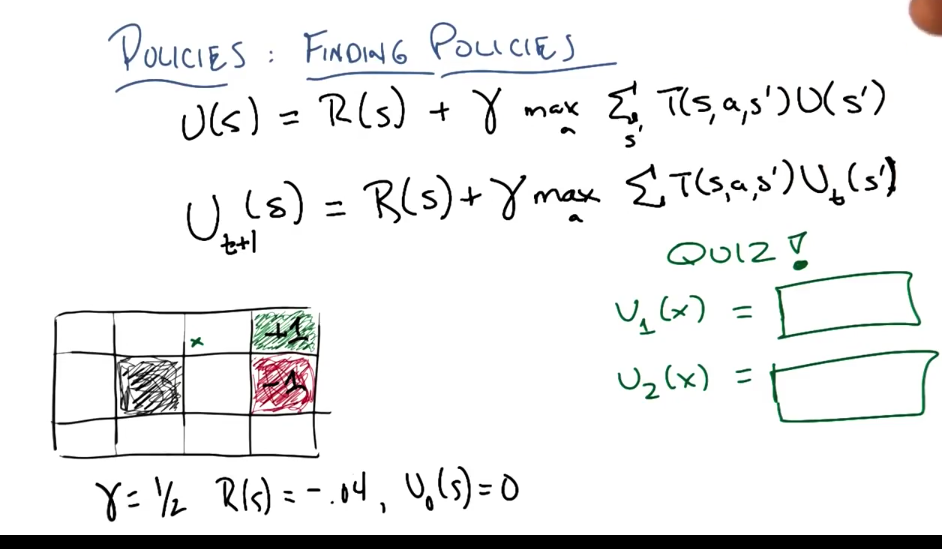 POLICIES: FINDING POLICIES
U(s) = R(s) + γ max_a Σ_s' T(s,a,s') U(s')
U_t+1(s) = R(s) + γ max_a Σ T(s,a,s') U_t(s')
QUIZ!
U_1(x) =
U_2(x) =
+1
x
-1
γ = 1/2 R(s) = -.04, U_0(s) = 0